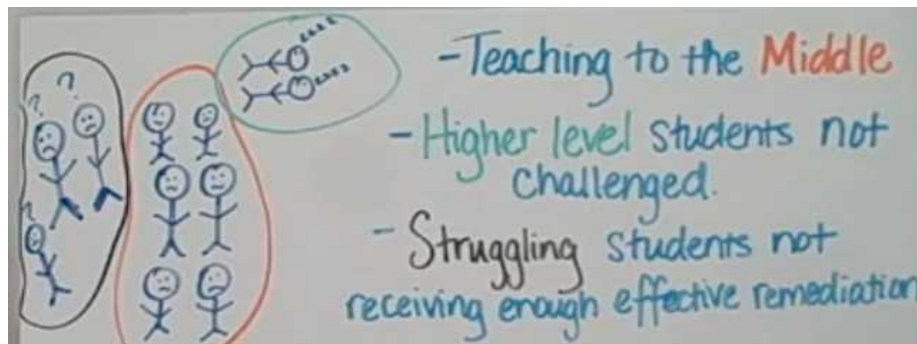 ? ?
?
zzzz
zzzz
-Teaching to the Middle
-Higher level students not
challenged.
- Struggling students not
receiving enough effective remediation